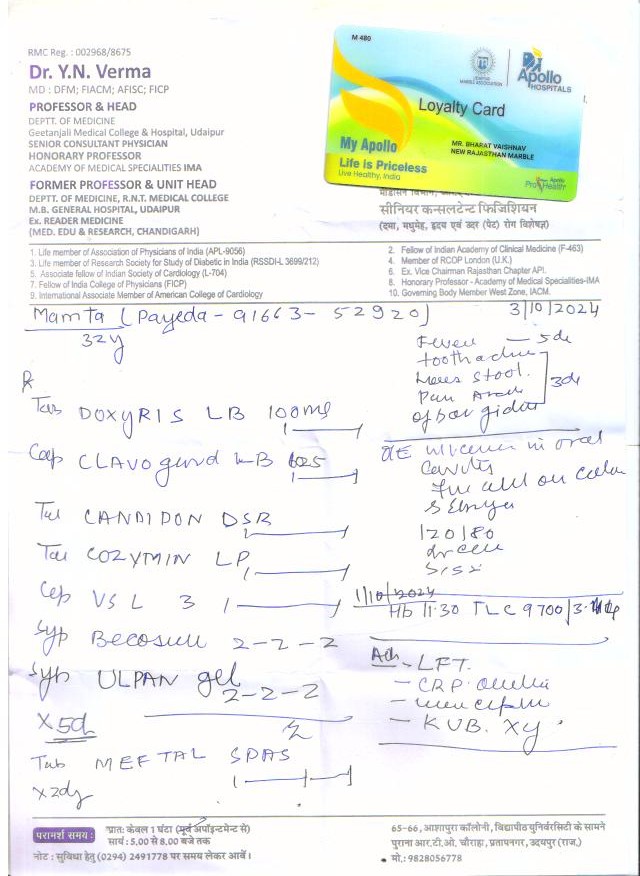 RMC Reg. : 002968/8675
Dr. Y.N. Verma
MD : DFM; FIACM; AFISC; FICP
PROFESSOR & HEAD
DEPTT. OF MEDICINE
Geetanjali Medical College & Hospital, Udaipur
SENIOR CONSULTANT PHYSICIAN
HONORARY PROFESSOR
ACADEMY OF MEDICAL SPECIALITIES IMA
FORMER PROFESSOR & UNIT HEAD
DEPTT. OF MEDICINE, R.N.T. MEDICAL COLLEGE
M.B. GENERAL HOSPITAL, UDAIPUR
Ex. READER MEDICINE
(MED. EDU & RESEARCH, CHANDIGARH)
M 480
MARBLE ASSOCIATION
Apollo
HOSPITALS
Loyalty Card
My Apollo
Life Is Priceless
Live Healthy, India
MR. BHARAT VAISHNAV
NEW RAJASTHAN MARBLE
Apollo
ProHealth
सीनियर कन्सलटेन्ट फिजिशियन
(दमा, मधुमेह, हृदय एवं उदर (पेट) रोग विशेषज्ञ)
1. Life member of Association of Physicians of India (APL-9056)
3. Life member of Research Society for Study of Diabetic in India (RSSDI-L 3699/212)
5. Associate fellow of Indian Society of Cardiology (L-704)
7. Fellow of India College of Physicians (FICP)
9. International Associate Member of American College of Cardiology
2. Fellow of Indian Academy of Clinical Medicine (F-463)
4. Member of RCOP London (U.K.)
6. Ex. Vice Chairman Rajasthan Chapter API.
8. Honorary Professor - Academy of Medical Specialities-IMA
10. Governing Body Member West Zone, IACM.
Mamta (Payeda - 91663- 52920) 3/10/2024
32y
Fever — 5d
toothache
Loose stool.
Pain
3d
Tab DOXYRIS LB 100mg
Cap CLAVO LB 625
in oral
cavity
Tab CANDIDON DSR
120/80
Tab COZYMIN LP
Cap VSL 3
1/10/2024
Hb 11.30 TLC 9700
Syp Becosule 2-2-2
Syp ULPAN gel
2-2-2
X5d
Adv - LFT.
- CRP
- KUB. Xy
Tab MEFTAL SPAS
X2dy
परामर्श समय :
प्रातः केवल 1 घंटा (पूर्व अपॉइन्टमेन्ट से)
सायं : 5.00 से 8.00 बजे तक
नोट : सुविधा हेतु (0294) 2491778 पर समय लेकर आवें।
65-66, आशापुरा कॉलोनी, विद्यापीठ युनिवरसिटी के सामने
पुराना आर.टी.ओ. चौराहा, प्रतापनगर, उदयपुर (राज.)
मो.: 9828056778